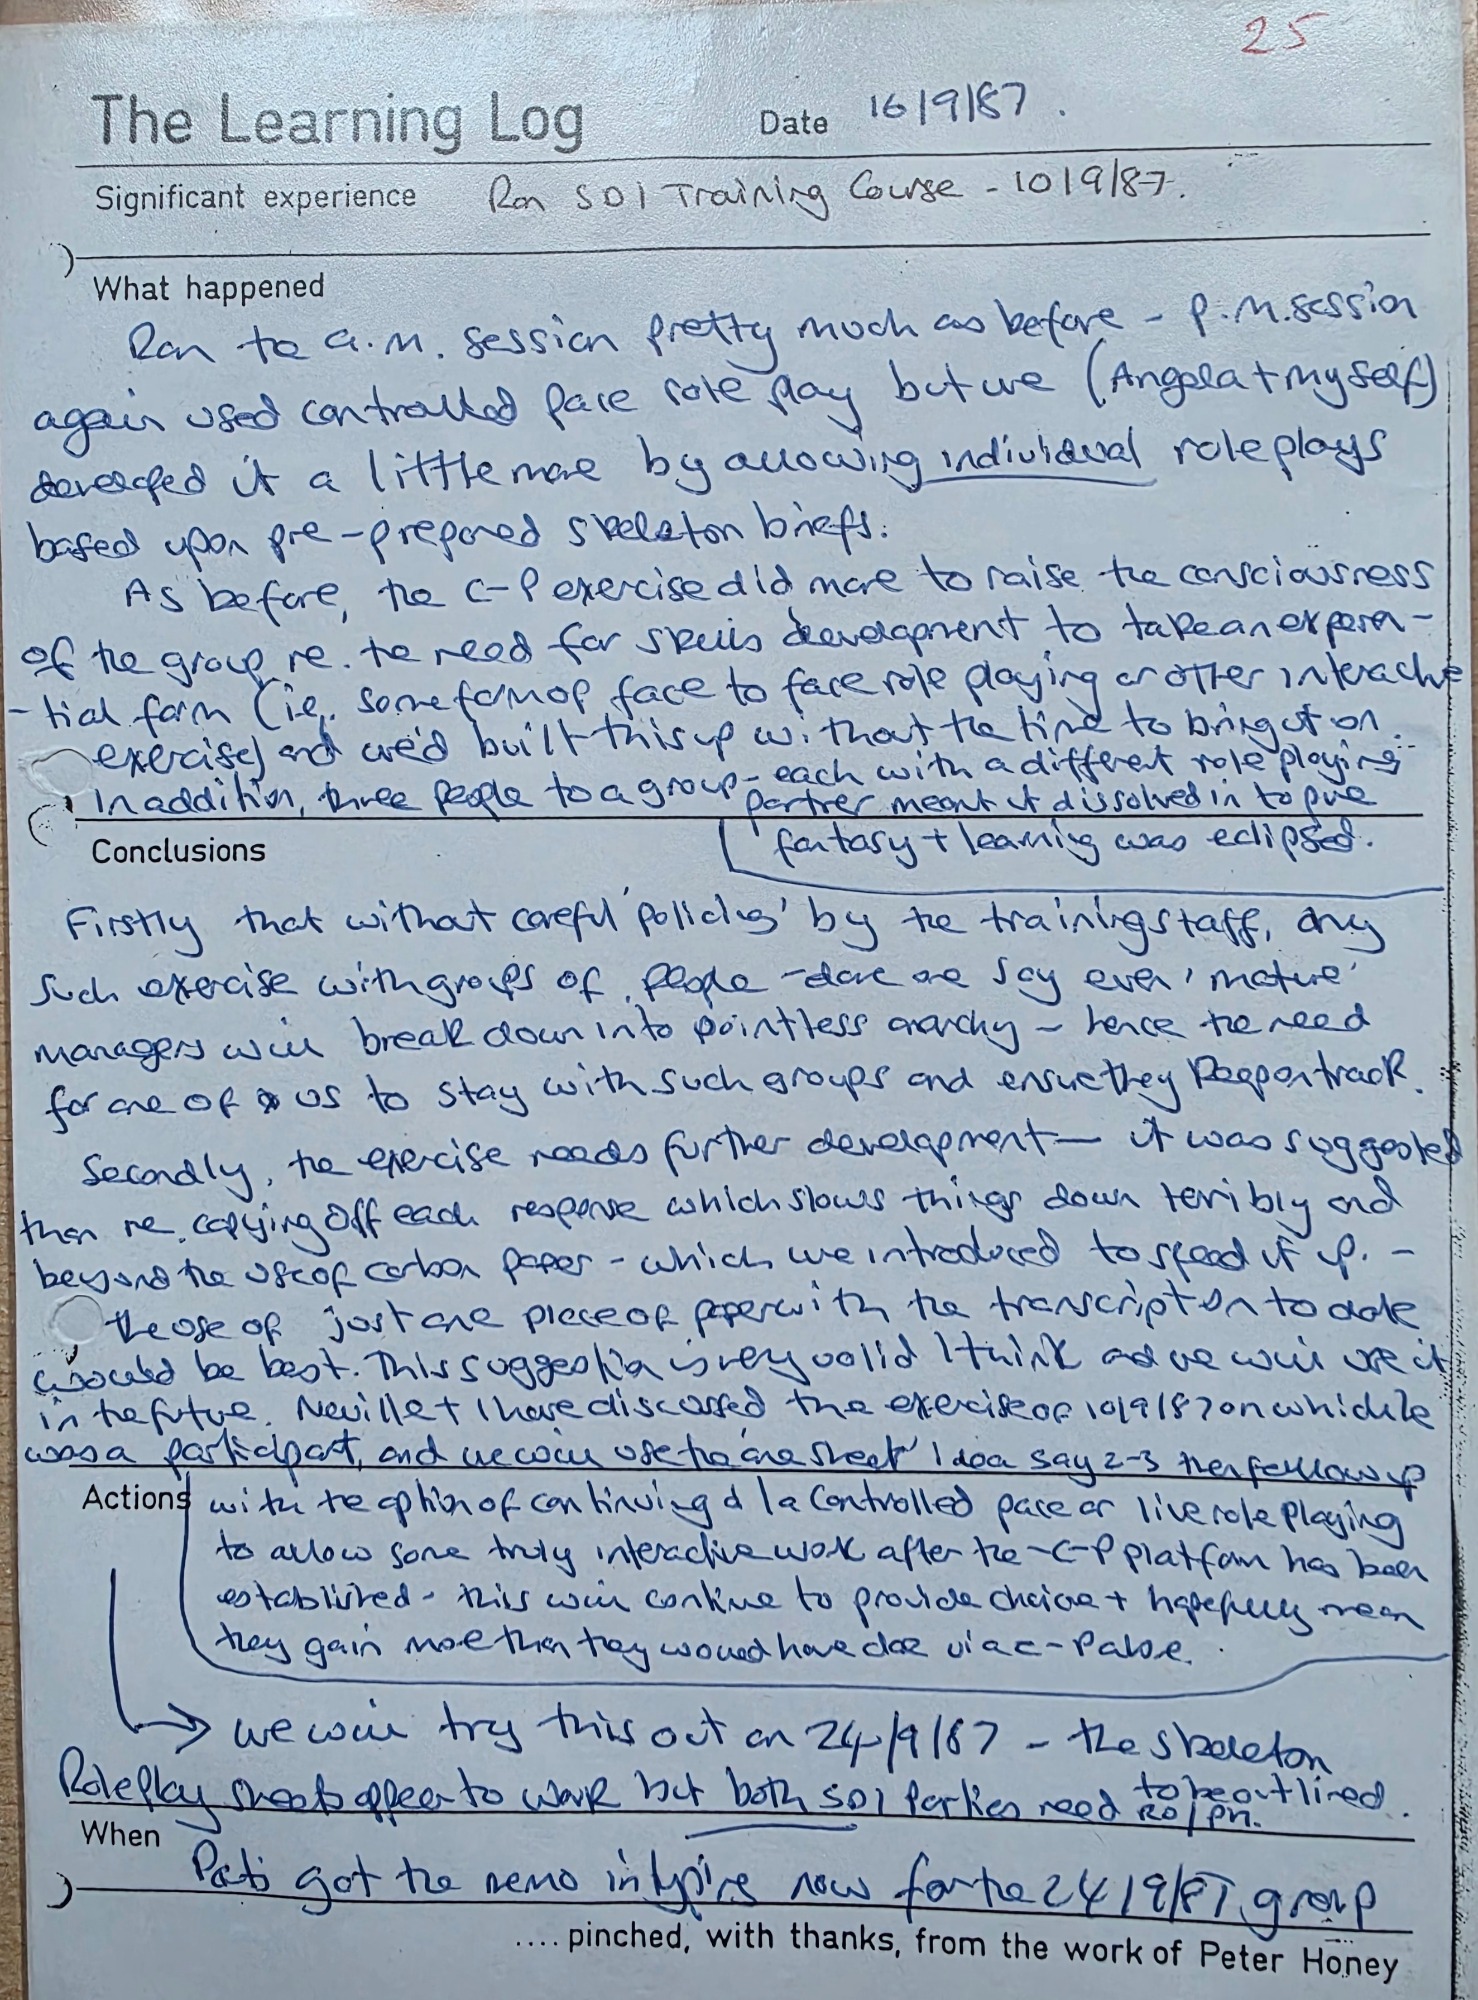 25
The Learning Log Date 16/9/87.
Significant experience Ran SDI Training Course - 10/9/87.
What happened
Ran the a.m. session pretty much as before - p.m. session
again used controlled pace role play but we (Angela + myself)
developed it a little more by allowing individual roleplays
based upon pre-prepared skeleton briefs.
As before, the C-P exercise did more to raise the consciousness
of the group re. the need for skills development to take an experen-
-tial form (i.e. some form of face to face role playing or other interactive
exercise) and we'd built this up without the time to bring it on.
In addition, three people to a group - each with a different role playing
partner meant it dissolved in to pure
fantasy + learning was eclipsed.
Conclusions
Firstly that without careful 'policing' by the training staff, any
such exercise with groups of people - dare one say even 'mature'
managers will break down into pointless anarchy - hence the need
for one of us to stay with such groups and ensure they keep on track.
Secondly, the exercise needs further development - it was suggested
then re. copying off each response which slows things down terribly and
beyond the use of carbon paper - which we introduced to speed it up. -
the use of just one piece of paper with the transcript on to date
would be best. This suggestion is very valid I think and we will use it
in the future. Neville + I have discussed the exercise of 10/9/87 on which he
was a participant, and we will use the 'one sheet' idea say 2-3 then follow up
with the option of continuing à la Controlled pace or live role playing
to allow some truly interactive work after the C-P platform has been
established - this will continue to provide choice + hopefully mean
they gain more than they would have done via C-P alone.
Actions
→ we will try this out on 24/9/87 - the skeleton
Roleplay sheets appear to work but both SDI parties need to be outlined.
RO/PN.
When
Pati got the memo in typing now for the 24/9/87 group
.... pinched, with thanks, from the work of Peter Honey